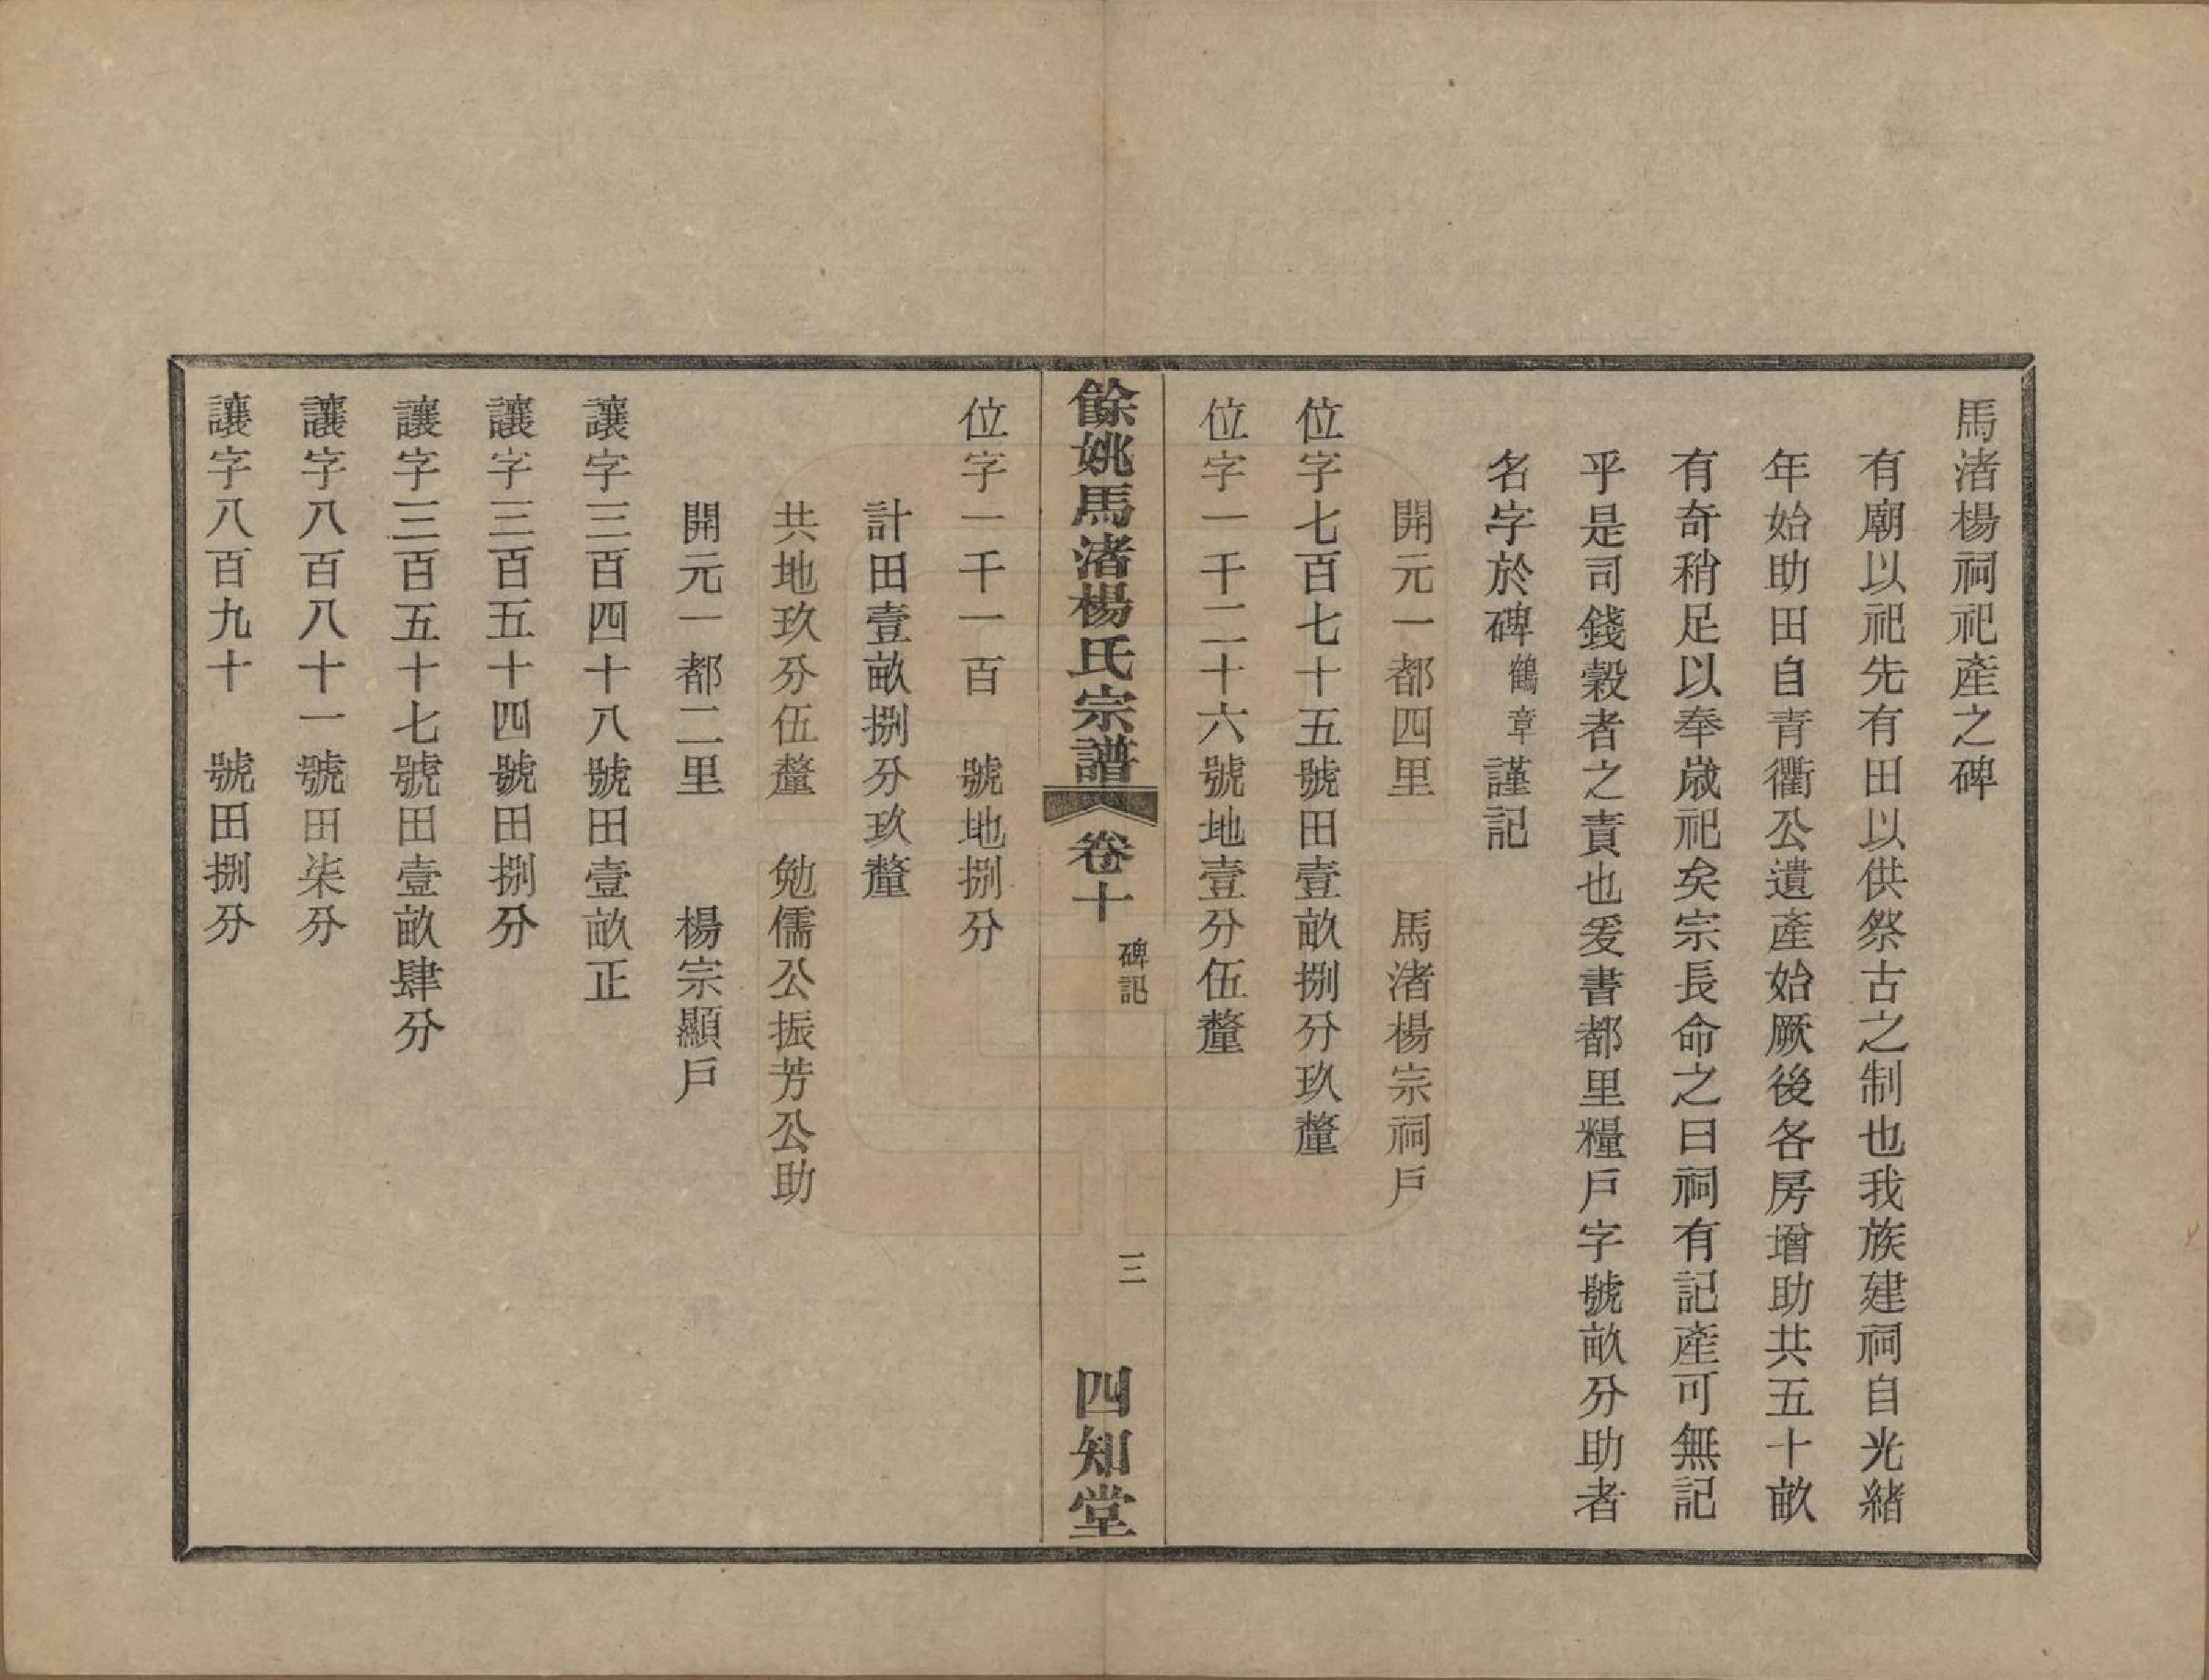 馬渚楊祠祀產之碑
有廟以祀先有田以供祭古之制也我族建祠自光緒
年始助田自青衢公遺產始厥後各房增助共五十畝
有奇稍足以奉歲祀矣宗長命之曰祠有記產可無記
乎是司錢穀者之責也爰書都里糧戶字號畝分助者
名字於碑鶴章謹記
開元一都四里 馬渚楊宗祠戶
位字七百七十五號田壹畝捌分玖釐
位字一千二十六號地壹分伍釐
餘姚馬渚楊氏宗譜 卷十 碑記 三 四知堂
位字一千一百 號地捌分
計田壹畝捌分玖釐
共地玖分伍釐 勉儒公振芳公助
開元一都二里 楊宗顯戶
讓字三百四十八號田壹畝正
讓字三百五十四號田捌分
讓字三百五十七號田壹畝肆分
讓字八百八十一號田柒分
讓字八百九十 號田捌分